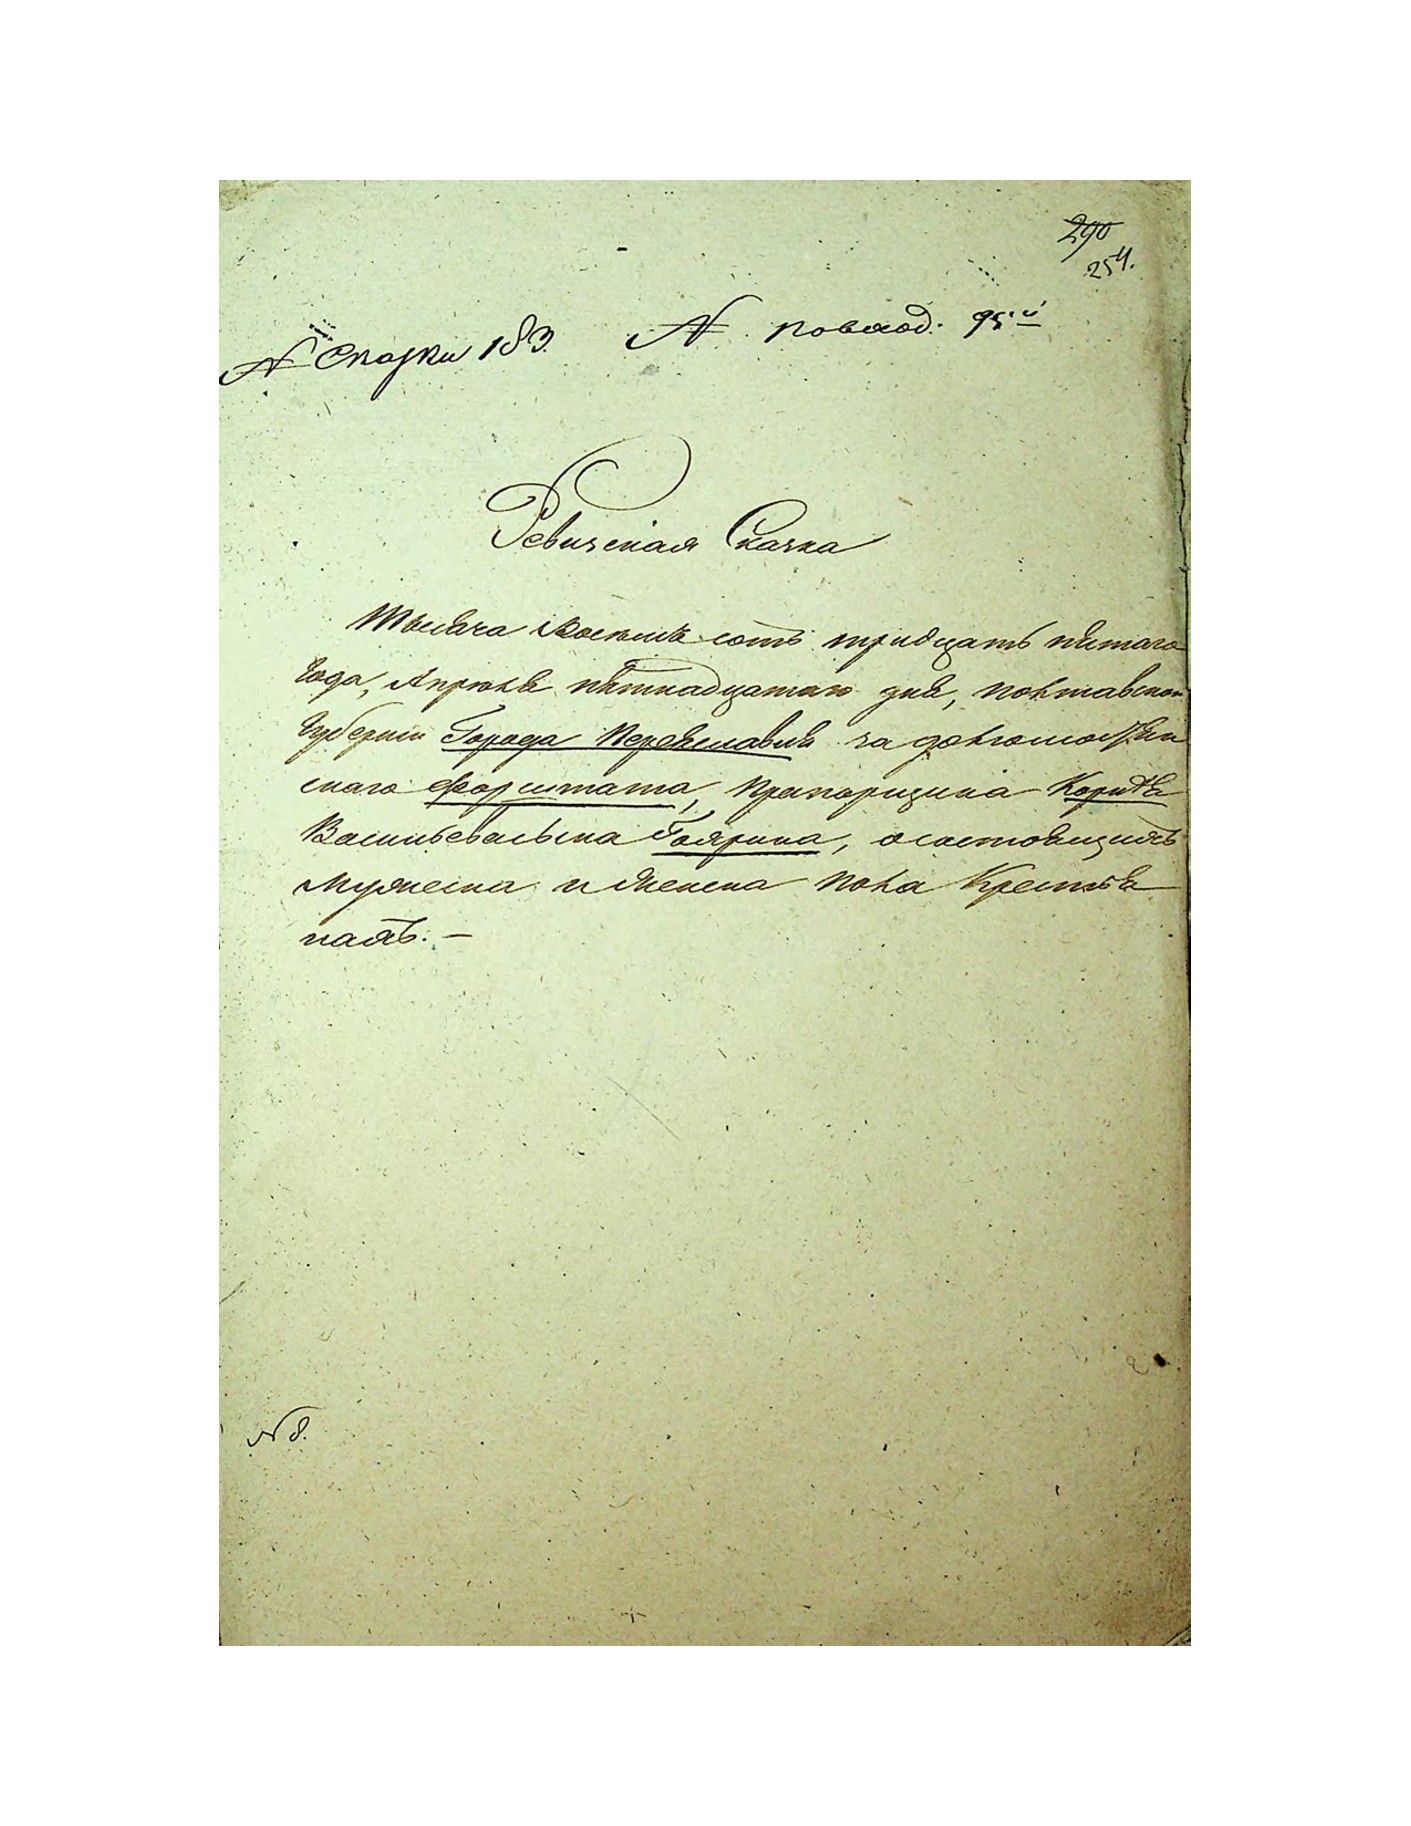 290
254.
№ Сказки 183. № повход. 95.й
Ревизская Сказка
Тысяча Восемь сотъ тридцать пятаго
Года, Апреля пятнадцатаго дня, Полтавской
Губернии Города Переяслава за
скаго Форштата, Прапорщика
Васильева сына Гоярина, о состоящихъ
Мужеска и женска пола Крестья
нахъ. —
№ 8.